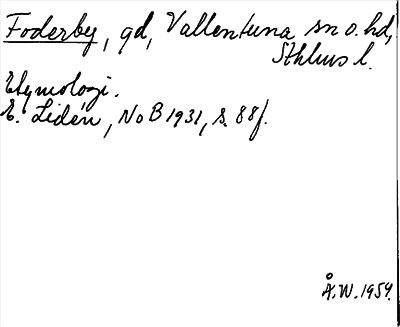 Foderby, gd, Vallentuna sn o. hd,
Sthlms l.
Etymologi.
E. Lidén, NoB 1931, s. 88f.
Å.W. 1959.